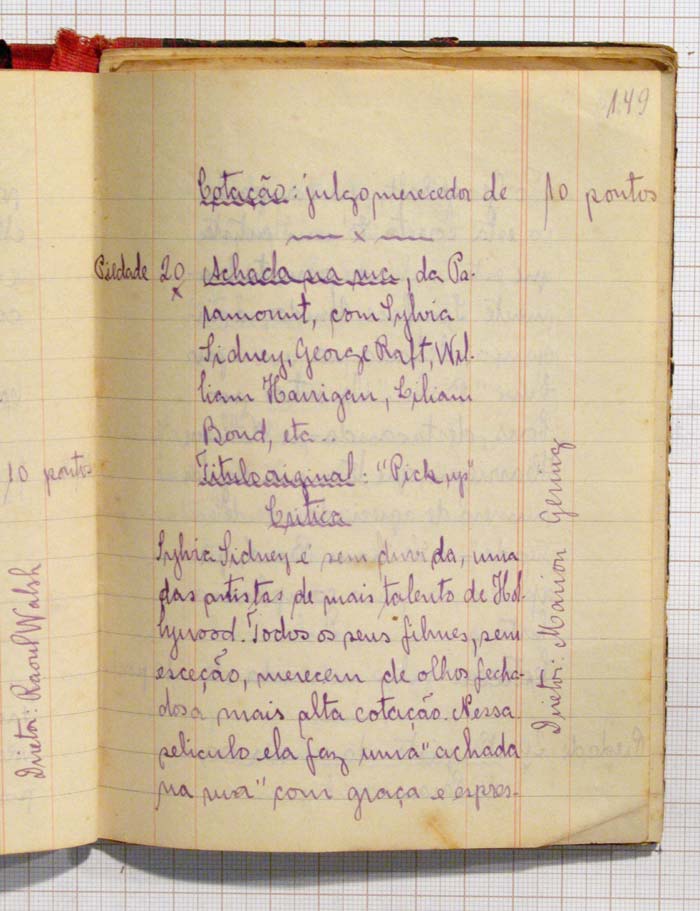 149
Cotação: julgo merecedor de 10 pontos
x
Piedade 20 Achada na rua, da Pa-
x
ramount, com Sylvia
Sidney, George Raft, Wil-
liam Harrigan, Liliam
Bond, etc
Titulo original: "Pick up"
Critica
Sylvia Sidney é sem duvida, uma
das artistas de mais talento de Hol-
lywood. Todos os seus filmes, sem
exceção, merecem de olhos fecha-
dos a mais alta cotação. Nessa
pelicula ela faz uma "achada
na rua" com graça e expres-
Diretor: Marion Gering
10 pontos
Diretor: Raoul Walsh